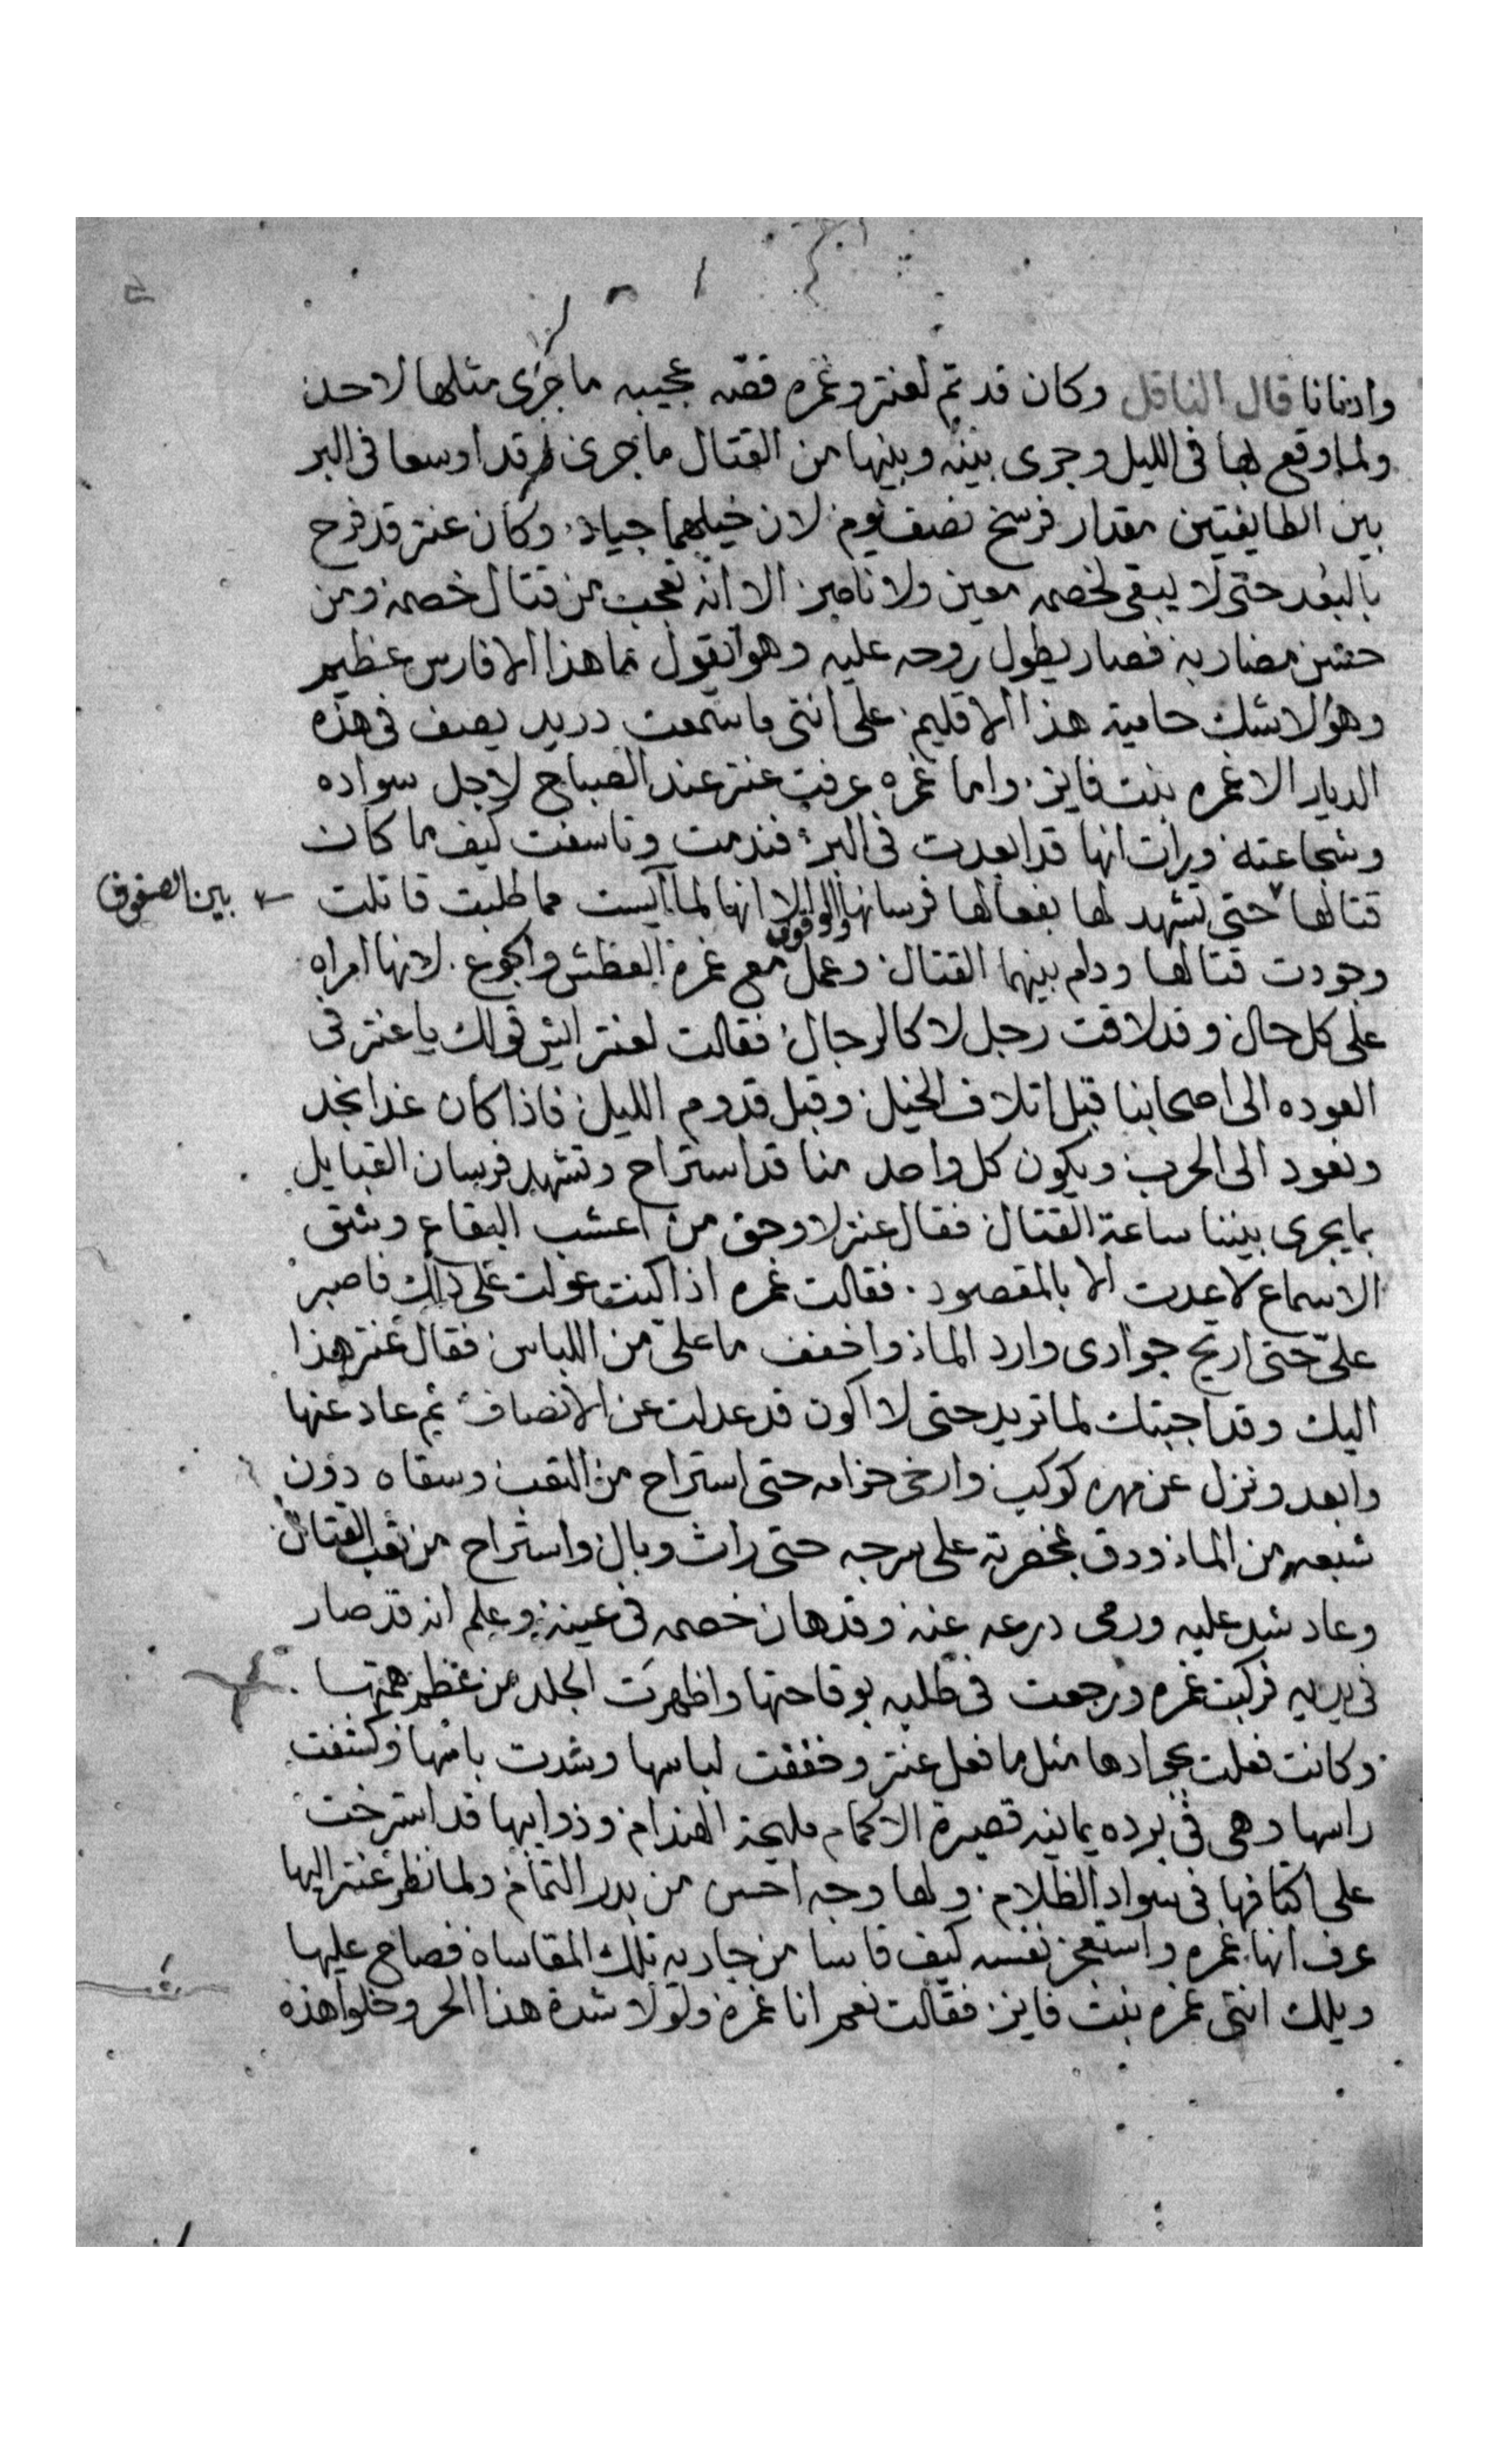 وادنانا قال الناقل وكان قد تم لعنتر وغمره قصه عجيبه ما جرى مثلها لاحد
ولما وقع بها فى الليل وجرى بينه وبينها من القتال ما جرى وقد اوسعا فى البر
بين الطايفتين مقدار فرسخ نصف يوم لان خيلهما جياد وكان عنتر قد فرح
بالبعد حتى لا يبقى لخصمه معين ولا ناصر الا انه تعجب من قتال خصمه ومن
حسن مضاربه فصار يطول روحه عليه وهو يقول ما هذا الا فارس عظيم
وهو لا شك حامية هذا الاقليم على انتى ما سمعت دريد يصف فى هذه
الديار الا غمره بنت فايز واما غمره عرفت عنتر عند الصباح لاجل سواده
وشجاعته ورات انها قد ابعدت فى البر فندمت وتاسفت كيف ما كان
قتالها حتى تشهد لها بفعالها فرسانها الا انها لما آيست مما طلبت قاتلت
بين الصفوف
وجودت قتالها ودام بينهما القتال والوقوف وعمل مع غمرة العطش والجوع لانها امراه
على كل حال وقد لاقت رجل لا كالرجال فقالت لعنتر ايش قولك يا عنتر فى
العوده الى اصحابنا قبل اتلاف الخيل وقبل قدوم الليل فاذا كان غدا نجد
ونعود الى الحرب ويكون كل واحد منا قد استراح وتشهد فرسان القبايل
بما يجرى بيننا ساعة القتال فقال عنتر لا وحق من اعشب البقاع وشق
الاسماع لا عدت الا بالمقصود فقالت غمره اذا كنت عولت على ذلك فاصبر
علىّ حتى اريح جوادى وارد الماء واخفف ما علىّ من اللباس فقال عنتر هذا
اليك وقد اجبتك لما تريد حتى لا اكون قد عدلت عن الانصاف ثم عاد عنها
وابعد ونزل عن مهره كوكب وارخى حزامه حتى استراح من التعب وسقاه دون
شبعه من الماء ودق بمخصرته على سرجه حتى راث وبال واستراح من تعب القتال
وعاد شد عليه ورمى درعه عنه وقد هان خصمه فى عينه وعلم انه قد صار
فى يديه فركبت غمره ورجعت فى طلبه بوقاحتها واظهرت الجلد من عظم همتها
وكانت فعلت بجوادها مثل ما فعل عنتر وخففت لباسها وشدت باسها وكشفت
راسها وهى فى برده يمانيه قصيرة الاكمام مليحة الهندام وذوايبها قد استرخت
على اكتافها فى سواد الظلام ولها وجه احسن من بدر التمام ولما نظر عنتر اليها
عرف انها غمره واستعجز نفسه كيف قاسا من جاريه تلك المقاساه فصاح عليها
ويلك انتى غمره بنت فايز فقالت نعم انا غمره ولولا شدة هذا الحر وخلو هذه